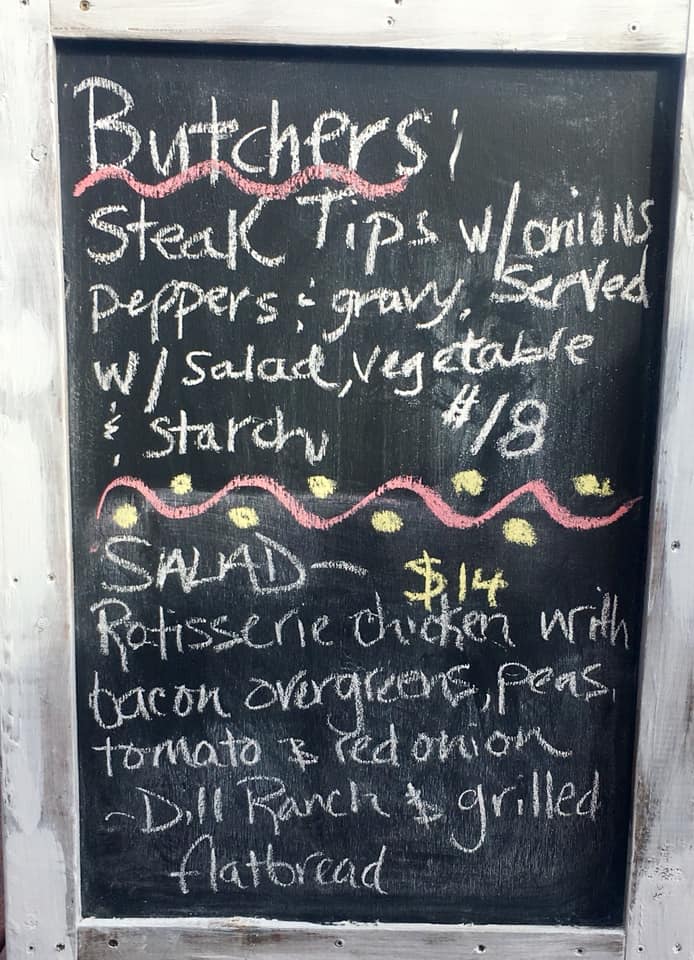 Butchers:
Steak Tips w/onions
peppers & gravy, Served
w/salad, vegetable
& starch
$18
SALAD~ $14
Rotisserie chicken with
bacon over greens, peas,
tomato & red onion
~Dill Ranch & grilled
flatbread